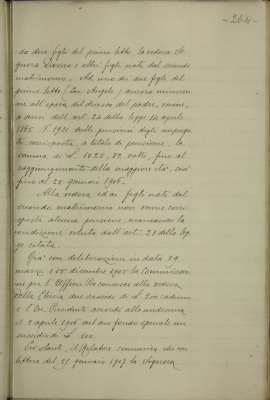 264
do due figli del primo letto, la vedova Si-
gnora e altri figli nati dal secondo
matrimonio. Ad uno dei due figli del
primo letto (Can. Angelo) ancora minoren-
ne all'epoca del decesso del padre, venne,
a sensi dell'art. 24 della legge 14 aprile
1865 N. 1731 sulle pensioni degli impiega-
ti, corrisposta, a titolo di pensione, la
somma di L. 1025,82 nette, fino al
raggiungimento della maggiore età, cioè
fino al 25 gennaio 1906.
Alla vedova ed ai figli nati dal
secondo matrimonio non venne corri-
sposta alcuna pensione, mancando la
condizione voluta dall'art. 23 della leg-
ge citata.
Già con deliberazioni in data 29
marzo e 15 dicembre 1905 la Commissio-
ne per l'Ufficio concesse alla vedova
della Chiesa due sussidi di L. 200 caduno
e l'On. Presidente accordò alla medesima
il 2 aprile 1906 sul suo fondo speciale un
sussidio di L. 100.
Ciò stante, il Relatore comunica che con
lettera del 27 gennaio 1907 la Signora